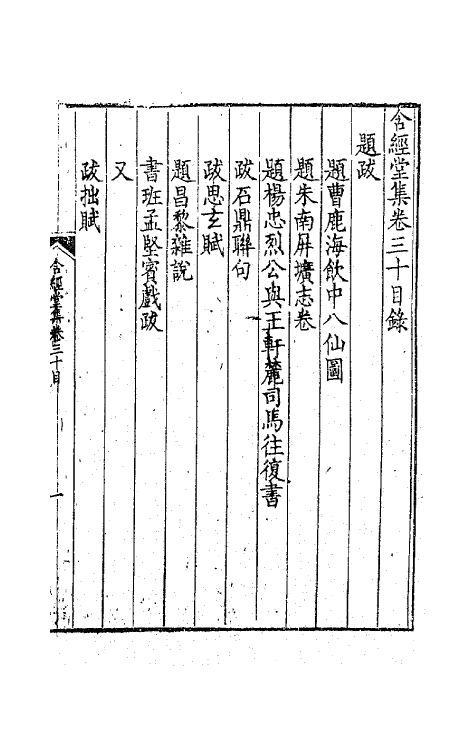 含經堂集卷三十目錄
題跋
題曹鹿海飲中八仙圖
題朱南屏壙志卷
題楊忠烈公與王軒麓司馬往復書
跋石鼎聯句
跋思玄賦
題昌黎雜說
書班孟堅賓戲跋
又
跋拙賦
含經堂集卷三十目
一